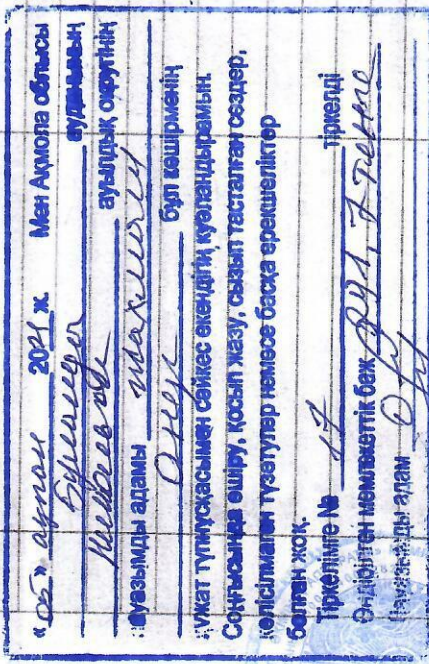 «05» ақпан 2021 ж. Мен Ақмола облысы
Бұланды ауданының
ауылдық округінің
лауазымды адамы
бұл көшірменің
құжат түпнұсқасымен сәйкес екендігін куәландырамын.
Соңғысында өшіру, қосып жазу, сызып тасталған сөздер,
келісілмаған түзетулер немесе басқа ерекшеліктер
болған жоқ.
Тіркелімге № 17 тіркелді
Өндірілген мемлекеттік баж
Лауазымды адам